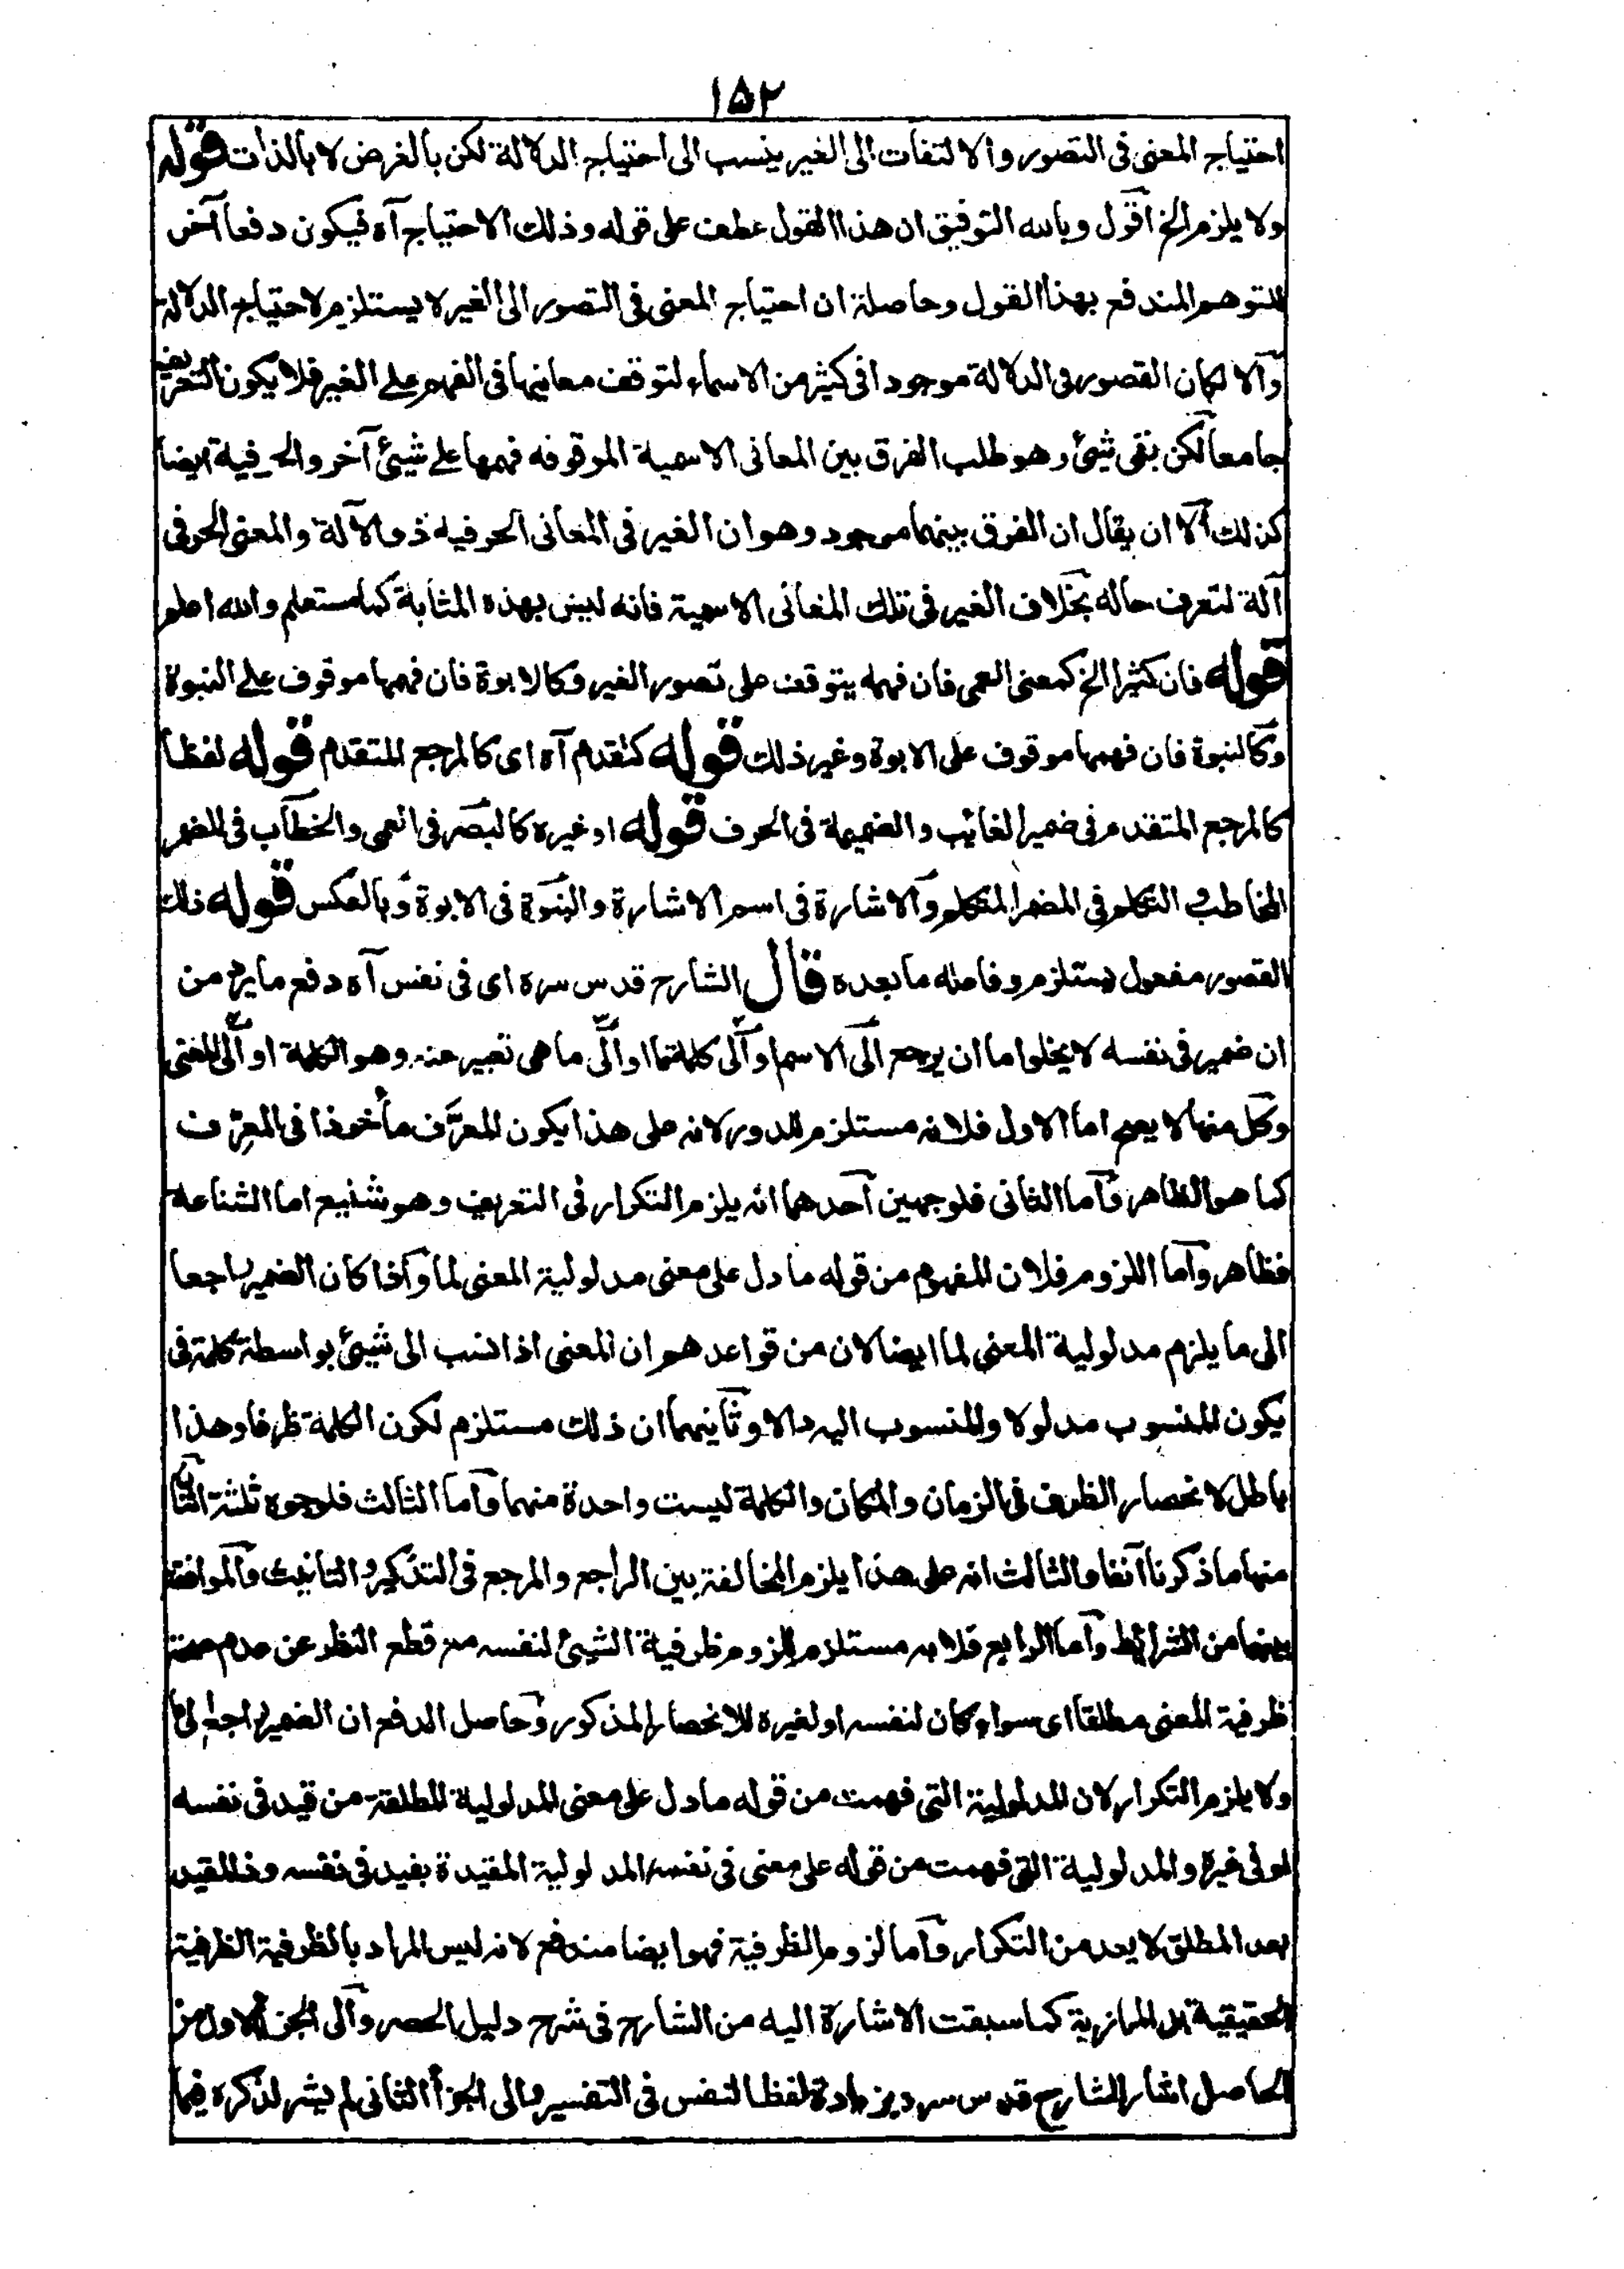 ١٥٢
احتياج المعنى فى التصور والالتفات الى الغير ينسب الى احتياج الدلالة لكن بالغرض لا بالذات قوله
ولا يلزم الخ اقول وبالله التوفيق ان هذا القول عطف على قوله وذلك الاحتياج آه فيكون دفعا آخر
للتوهم المندفع بهذا القول وحاصلة ان احتياج المعنى فى التصور الى الغير لا يستلزم لاحتياج الدلالة
وآلا لكان القصور فى الدلالة موجودا فى كثير من الاسماء لتوقف معانيها فى الفهم على الغير فلا يكون التعريف
جامعا لكن بقى شيئ وهو طلب الفرق بين المعانى الاسمية الموقوفه فهمها على شيئ آخر والحرفية ايضا
كذلك آلا ان يقال ان الفرق بينهما موجود وهو ان الغير فى المعانى الحرفيه ذو الآلة والمعنى الحرفى
آلة لتعرف حاله بخلاف الغير فى تلك المعانى الاسمية فانه ليس بهذه المثابة كما ستعلم والله اعلم
قوله فان كثيرا الخ كمعنى العمى فان فهمه يتوقف على تصور الغير وكالابوة فان فهمها موقوف على النبوة
وكالنبوة فان فهمها موقوف على الابوة وغير ذلك قوله كتقدم آه اى كالمرجع المتقدم قوله لفظا
كالمرجع المتقدم فى ضمير الغائب والضميمة فى الحرف قوله او غيره كالبصر فى العمى والخطاب فى المضمر
المخاطب والتكلم فى المضمر المتكلم وآلاشارة فى اسم الاشارة والبنوة فى الابوة وبالعكس قوله ذلك
القصور مفعول يستلزم وفاعله ما بعده قال الشارح قدس سره اى فى نفس آه دفع ما يرد من
ان ضمير فى نفسه لا يخلوا ما ان يرجع الى الاسم او آلى كلمة ما او آلى ما هى تعبير عنه وهو الكلمة او آلى المعنى
وكل منها لا يصح اما الاول فلانه مستلزم للدور لانه على هذا يكون المعرَّف مأخوذا فى المعرِّف
كما هو الظاهر وآما الثانى فلوجهين آحدهما انه يلزم التكرار فى التعريف وهو شنيع اما الشناعة
فظاهر وآما اللزوم فلان المفهوم من قوله ما دل على معنى مدلولية المعنى لما وآذا كان الضمير راجعا
الى ما يلزم مدلولية المعنى لما ايضا لان من قواعدهم ان المعنى اذا نسب الى شيئ بواسطة كلمة فى
يكون المنسوب مدلولا والمنسوب اليه دالا وثآنيهما ان ذلك مستلزم لكون الكلمة ظرفا وهذا
باطل لانحصار الظرف فى الزمان والمكان والكلمة ليست واحدة منهما وآما الثالث فلوجوه ثلثة اثنان
منها ما ذكرنا آنفا والثالث انه على هذا يلزم المخالفة بين الراجع والمرجع فى التذكير والتانيث والموافقة
بينهما من الشرائط وآما الرابع فلانه مستلزم للزوم ظرفية الشيئ لنفسه مع قطع النظر عن عدم صحة
ظرفية المعنى مطلقا اى سواء كان لنفسه او لغيره للانحصار المذكور وحاصل الدفع ان الضمير راجع الى ما
ولا يلزم التكرار لان المدلولية التى فهمت من قوله ما دل على معنى المدلولية المطلقة من قيد فى نفسه
او فى غيره والمدلولية التى فهمت من قوله على معنى فى نفسه المدلولية المقيدة بقيد فى نفسه وذا المقيد
بعد المطلق لا يعد من التكرار وآما لزوم الظرفية فهو ايضا مندفع لانه ليس المراد بالظرفية الظرفية
الحقيقية بل المجازية كما سبقت الاشارة اليه من الشارح فى شرح دليل الحصر وآلى الجزء الاول من
الحاصل اشار الشارح قدس سره بزيادة لفظ النفس فى التفسير والى الجزأ الثانى لم يشر لذكره فيما